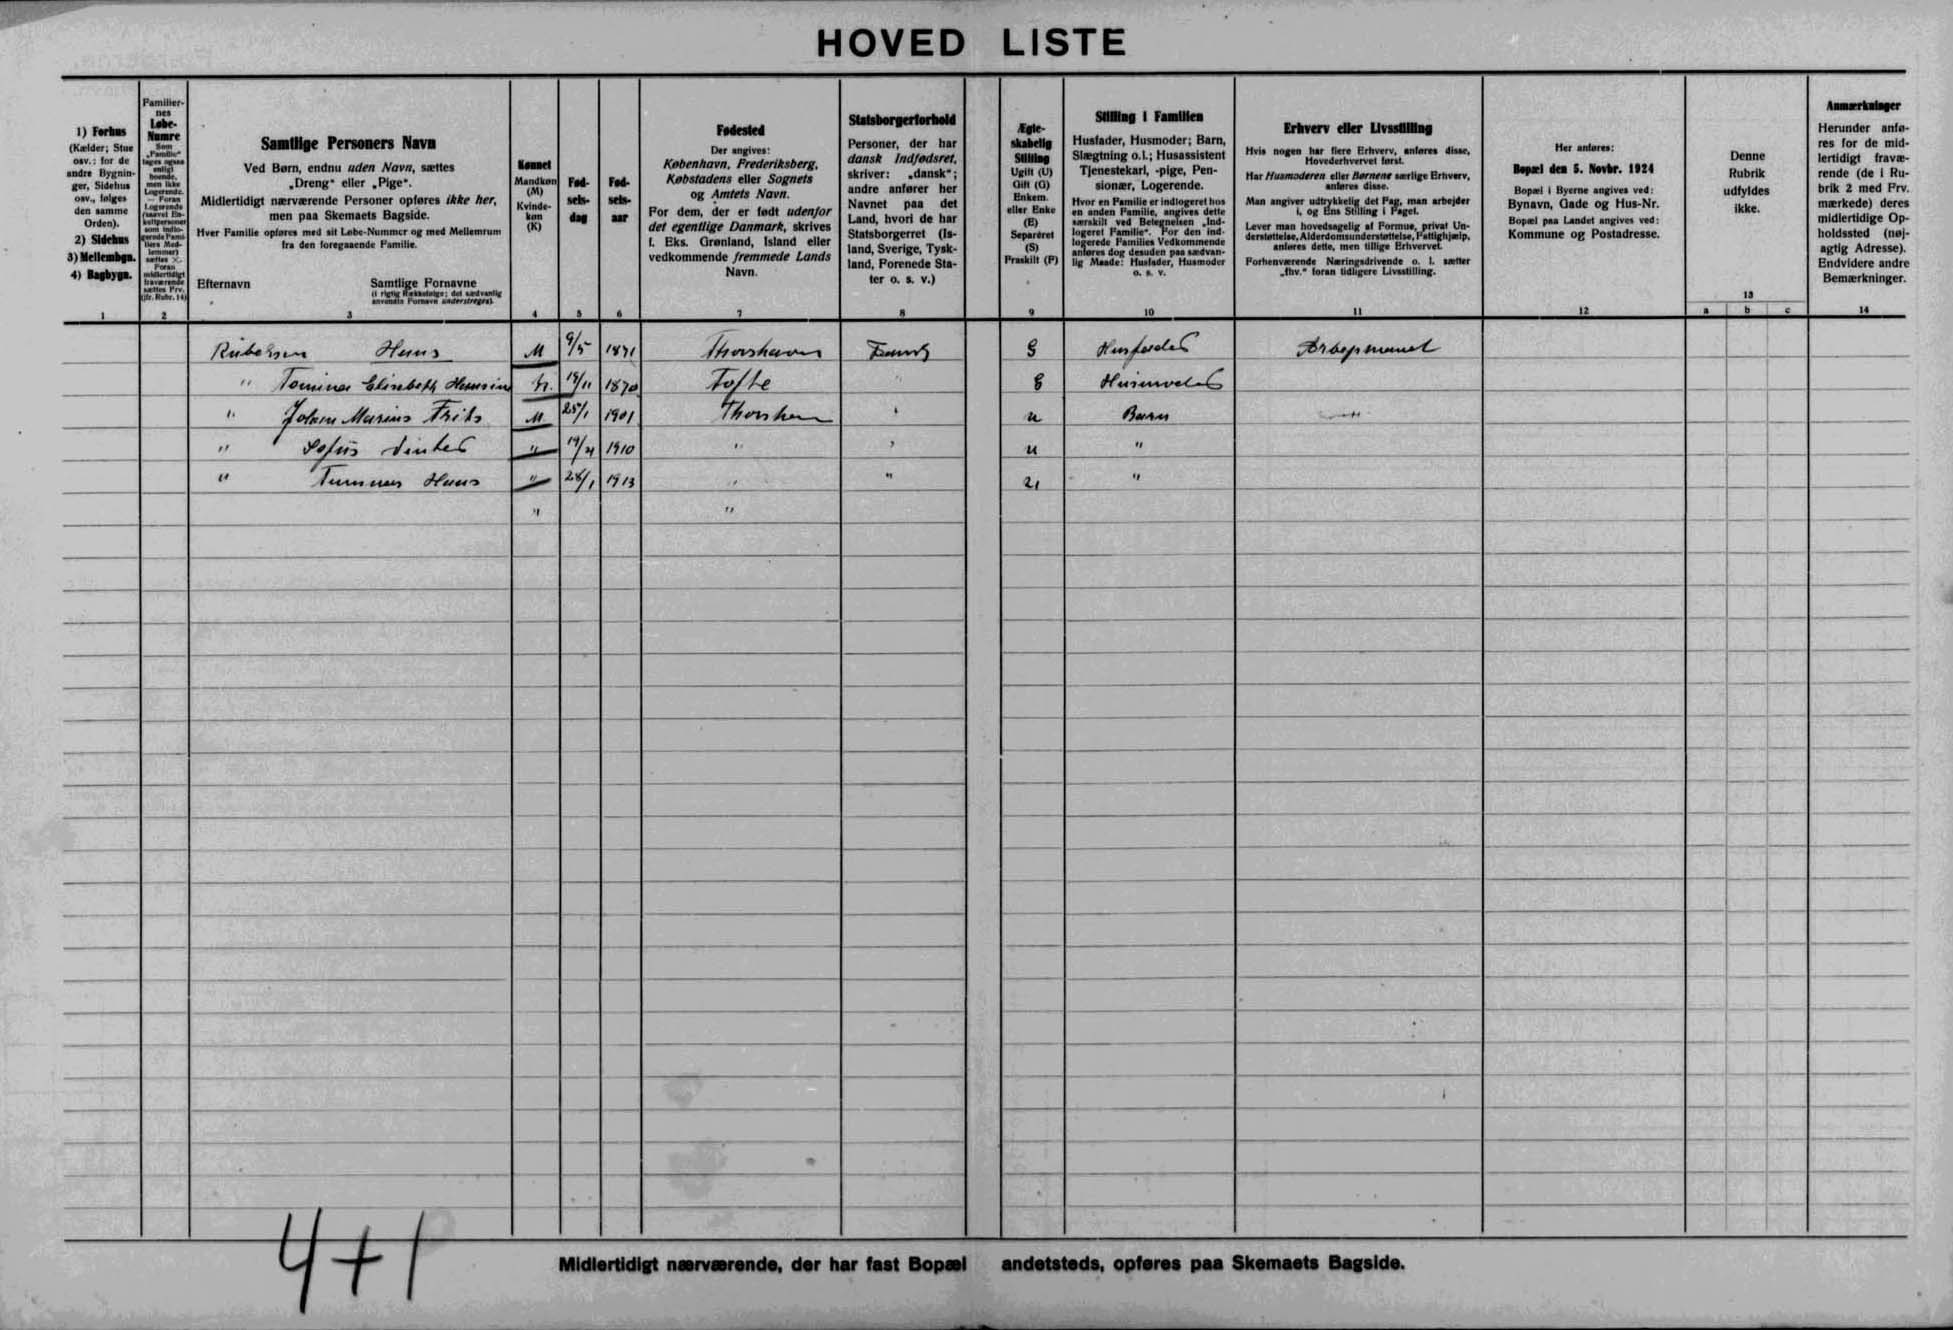 HOVED LISTE
1) Forhus
(Kælder; Stue
osv.: for de
andre Bygnin-
ger, Sidehus
osv., følges
den samme
Orden).
2) Sidehus
3) Mellembgn.
4) Bagbygn.
Familier-
nes
Løbe-
Numre
Som
„Familie“
tages ogsaa
enligt
boende,
men ikke
Logerende.
— Foran
Logerende
(saavel En-
keltpersoner
som indlo-
gerede Fami-
liers Med-
lemmer)
sættes ×.
Foran
midlertidigt
fraværende
sættes Frv.
(jfr. Rubr. 14)
Samtlige Personers Navn
Ved Børn, endnu uden Navn, sættes
„Dreng“ eller „Pige“.
Midlertidigt nærværende Personer opføres ikke her,
men paa Skemaets Bagside.
Hver Familie opføres med sit Løbe-Nummer og med Mellemrum
fra den foregaaende Familie.
Efternavn Samtlige Fornavne
(i rigtig Rækkefølge; det sædvanlig
anvendte Fornavn understreges).
Kønnet
Mandkøn
(M)
Kvinde-
køn
(K)
Fød-
sels-
dag
Fød-
sels-
aar
Fødested
Der angives:
København, Frederiksberg,
Købstadens eller Sognets
og Amtets Navn.
For dem, der er født udenfor
det egentlige Danmark, skrives
f. Eks. Grønland, Island eller
vedkommende fremmede Lands
Navn.
Statsborgerforhold
Personer, der har
dansk Indfødsret,
skriver: „dansk“;
andre anfører her
Navnet paa det
Land, hvori de har
Statsborgerret (Is-
land, Sverige, Tysk-
land, Forenede Sta-
ter o. s. v.)
Ægte-
skabelig
Stilling
Ugift (U)
Gift (G)
Enkem.
eller Enke
(E)
Separeret
(S)
Fraskilt (F)
Stilling i Familien
Husfader, Husmoder; Barn,
Slægtning o.l.; Husassistent
Tjenestekarl, -pige, Pen-
sionær, Logerende.
Hvor en Familie er indlogeret hos
en anden Familie, angives dette
særskilt ved Betegnelsen „Ind-
logeret Familie“. For den ind-
logerede Families Vedkommende
anføres dog desuden paa sædvan-
lig Maade: Husfader, Husmoder
o. s. v.
Erhverv eller Livsstilling
Hvis nogen har flere Erhverv, anføres disse,
Hovederhvervet først.
Har Husmoderen eller Børnene særlige Erhverv,
anføres disse.
Man angiver udtrykkelig det Fag, man arbejder
i, og Ens Stilling i Faget.
Lever man hovedsagelig af Formue, privat Un-
derstøttelse, Alderdomsunderstøttelse, Fattighjælp,
anføres dette, men tillige Erhvervet.
Forhenværende Næringsdrivende o. l. sætter
„fhv.“ foran tidligere Livsstilling.
Her anføres:
Bopæl den 5. Novbr. 1924
Bopæl i Byerne angives ved:
Bynavn, Gade og Hus-Nr.
Bopæl paa Landet angives ved:
Kommune og Postadresse.
Denne
Rubrik
udfyldes
ikke.
Anmærkninger
Herunder anfø-
res for de mid-
lertidigt fravæ-
rende (de i Ru-
brik 2 med Frv.
mærkede) deres
midlertidige Op-
holdssted (nøj-
agtig Adresse).
Endvidere andre
Bemærkninger.
1 2 3 4 5 6 7 8 9 10 11 12 13 a b c 14
Hans M 9/5 1871 Thorshavn Dansk G Husfader
" Elisabeth 1870 Tofte " G Husmoder
" Johan Marius Frits M 25/1 1901 Thorshavn " u Barn "
" Sofus " 1910 " " u "
" Hans " 28/1 1913 " " u "
" "
4+1
Midlertidigt nærværende, der har fast Bopæl andetsteds, opføres paa Skemaets Bagside.